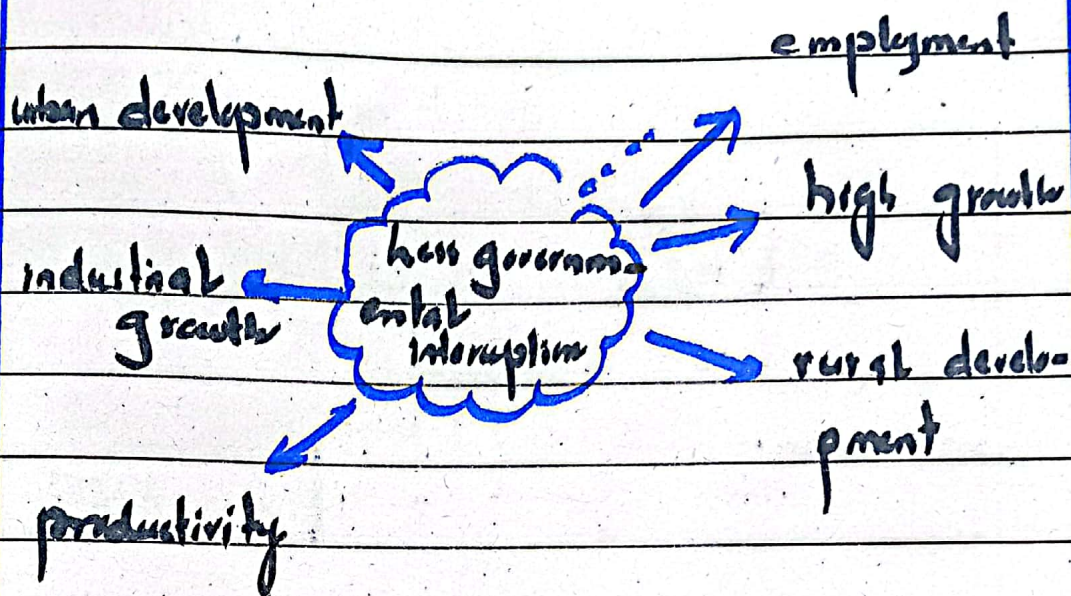 employment
urban development
high growth
less governm-
ental
interuption
industrial
growth
rural develo-
pment
productivity